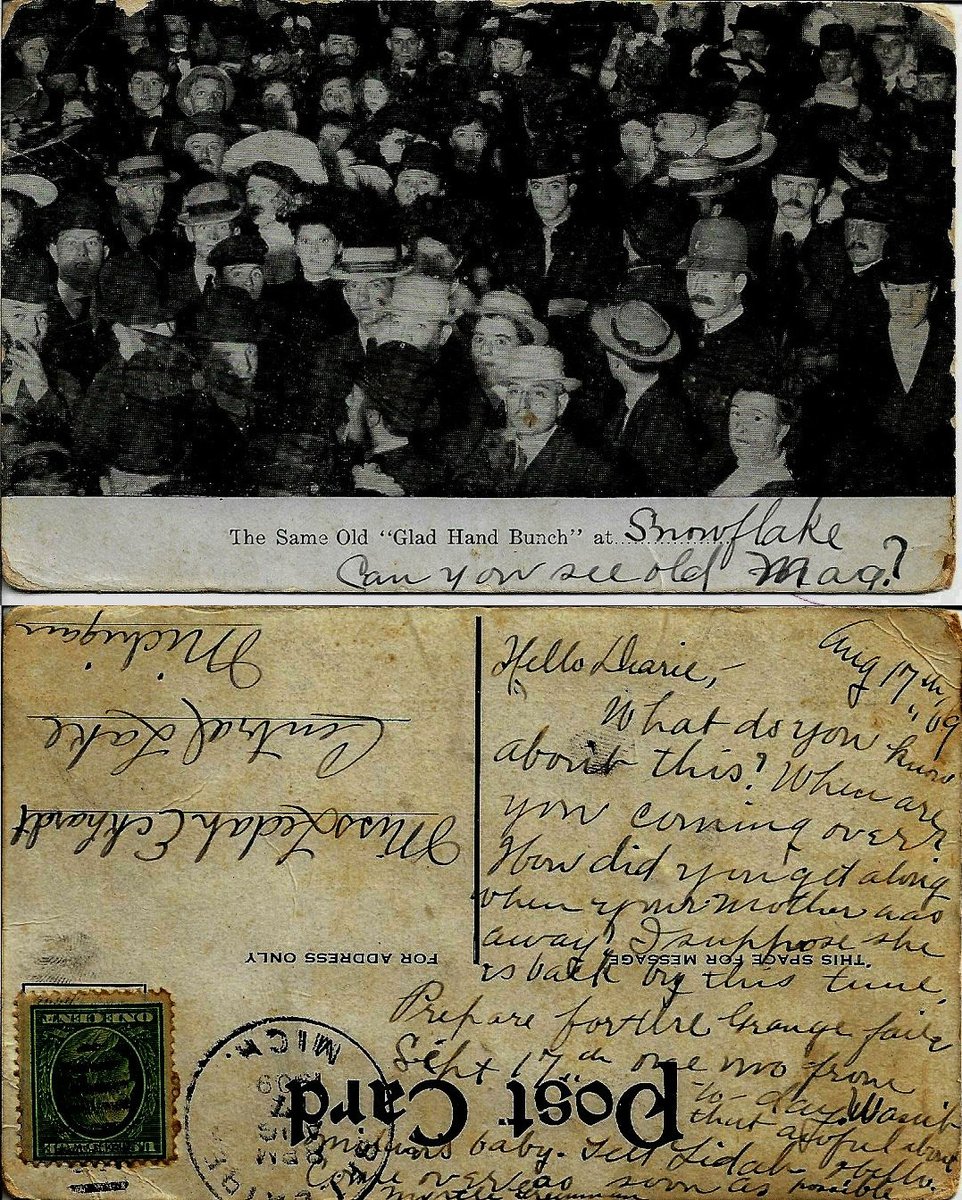 The Same Old "Glad Hand Bunch" at Snowflake
Can you see old Mag?
Aug 17th, "09
Hello Dearie,-
What do you know
about this? When are
you coming over?
How did you get along
when your mother was
away? I suppose she
is back by this time.
Prepare for the Grange fair
Sept 17th one mo from
to-day. Wasn't
that awful about
baby. Tell Lidah "hello".
Come over as soon as possible
Myrtle
THIS SPACE FOR MESSAGE
FOR ADDRESS ONLY
Post Card
Miss Ledah Eckhardt
Central Lake
Michigan
MICH.
8 PM
ONE CENT